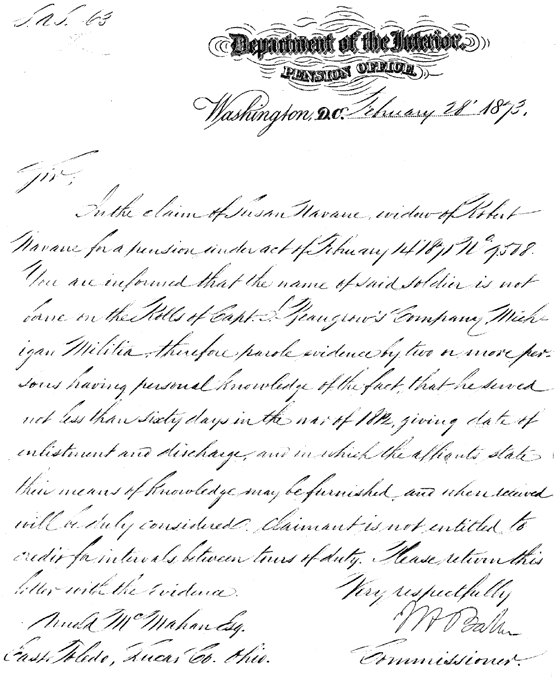 S.A.S. 63
Department of the Interior.
PENSION OFFICE.
Washington, D.C. February 28' 1873.
Sir;
In the claim of Susan Navarre, widow of Robert
Navarre for a pension under act of February 14 1871 No 9,508.
You are informed that the name of said soldier is not
borne on the Rolls of Capt. Company, Mich-
igan Militia, therefore parole evidence by two or more per-
sons having personal knowledge of the fact, that he served
not less than sixty days in the war of 1812, giving date of
enlistment and discharge, and in which the affiants state
their means of knowledge may be furnished, and when received
will be duly considered. Claimant is not entitled to
credit for intervals between tours of duty. Please return this
letter with the Evidence.
Very respectfully
McMahan Esq.
J H Baker
East Toledo, Lucas Co. Ohio.
Commissioner.